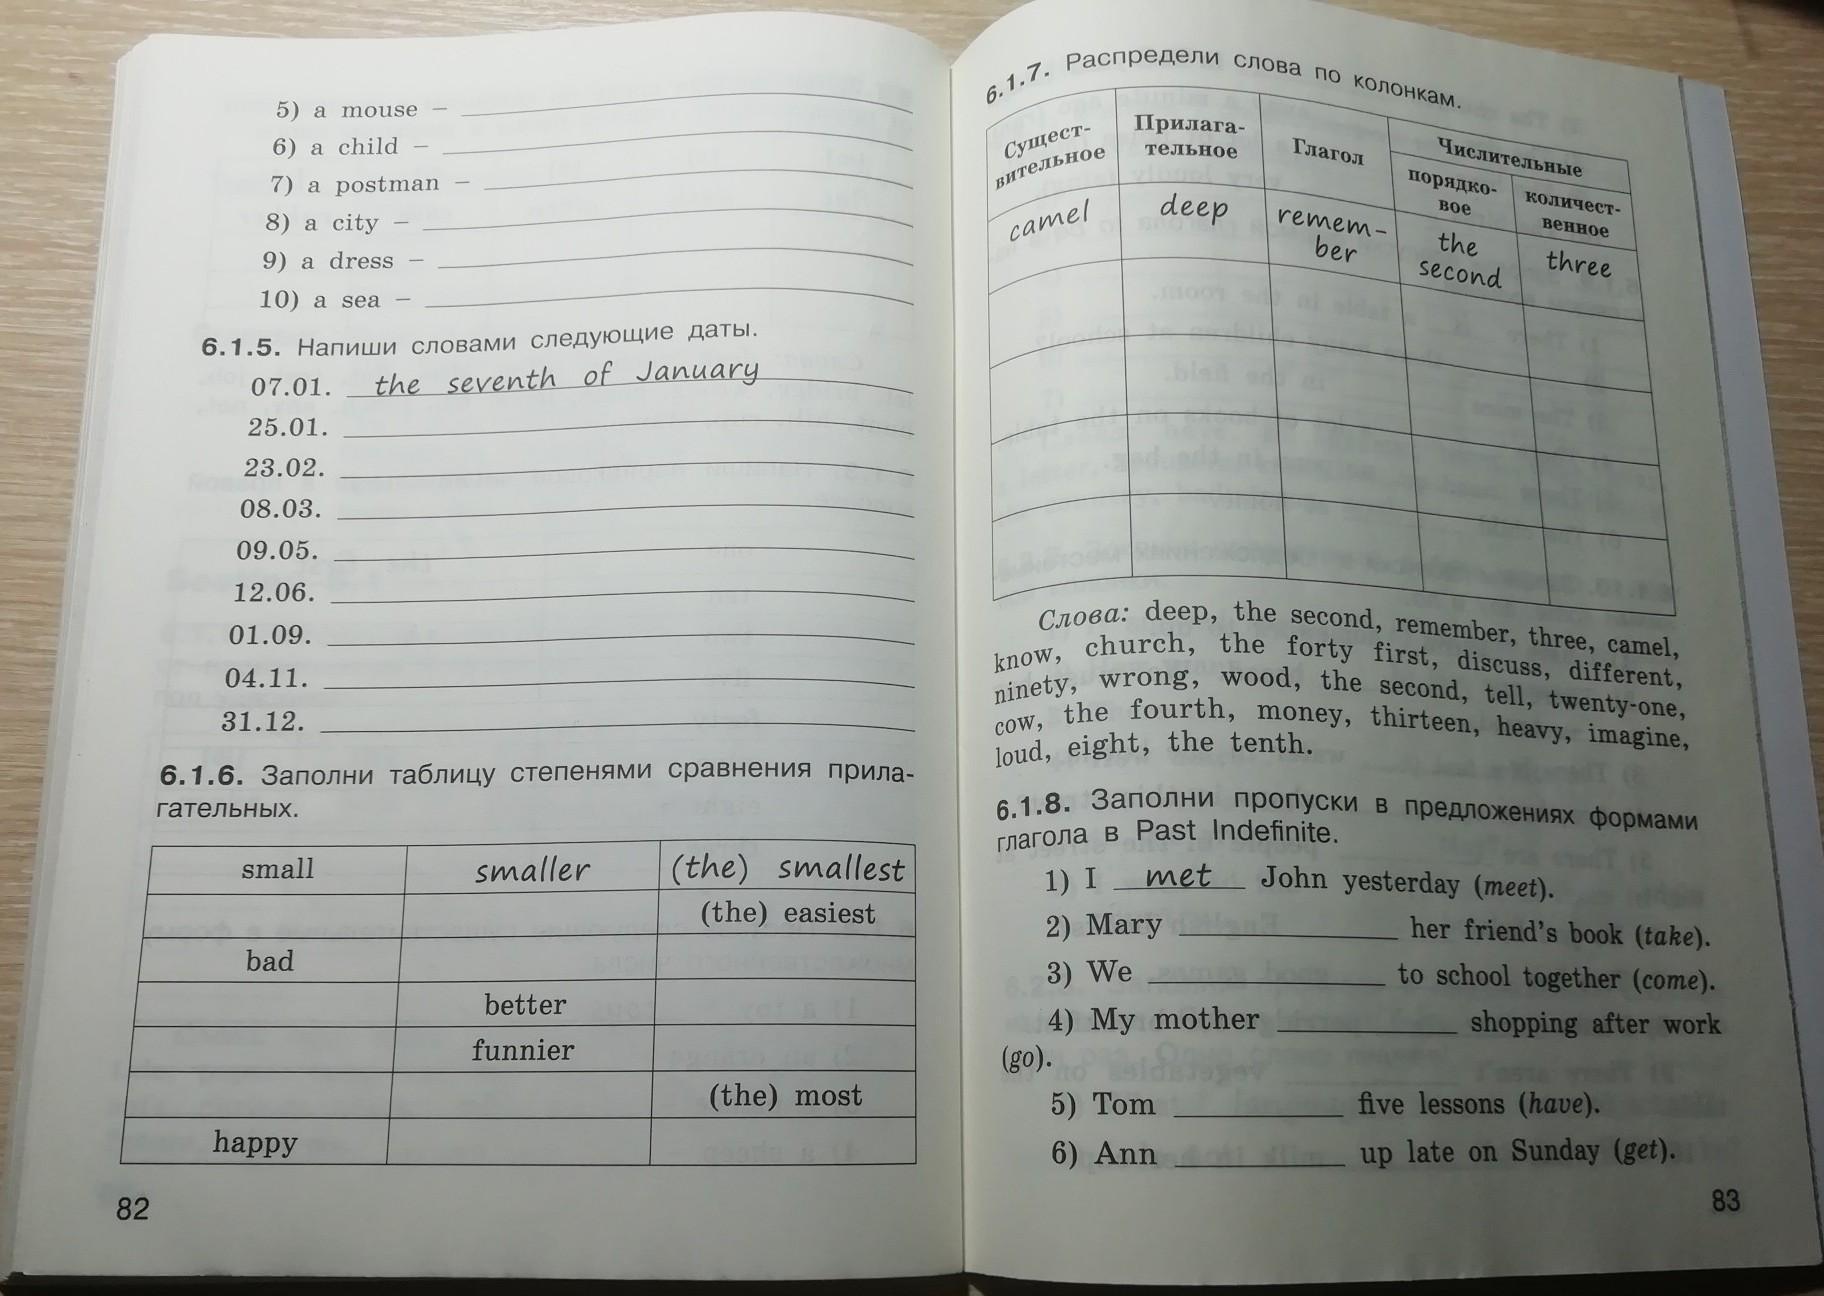 5) a mouse –
6) a child –
7) a postman –
8) a city –
9) a dress –
10) a sea –
6.1.5. Напиши словами следующие даты.
07.01. the seventh of January
25.01.
23.02.
08.03.
09.05.
12.06.
01.09.
04.11.
31.12.
6.1.6. Заполни таблицу степенями сравнения прила-
гательных.
small smaller (the) smallest
(the) easiest
bad
better
funnier
(the) most
happy
82
6.1.7. Распредели слова по колонкам.
Сущест-
вительное
Прилага-
тельное
Глагол
Числительные
порядко-
вое
количест-
венное
camel
deep
remem-
ber
the
second
three
Слова: deep, the second, remember, three, camel,
know, church, the forty first, discuss, different,
ninety, wrong, wood, the second, tell, twenty-one,
cow, the fourth, money, thirteen, heavy, imagine,
loud, eight, the tenth.
6.1.8. Заполни пропуски в предложениях формами
глагола в Past Indefinite.
1) I met John yesterday (meet).
2) Mary her friend's book (take).
3) We to school together (come).
4) My mother shopping after work
(go).
5) Tom five lessons (have).
6) Ann up late on Sunday (get).
83